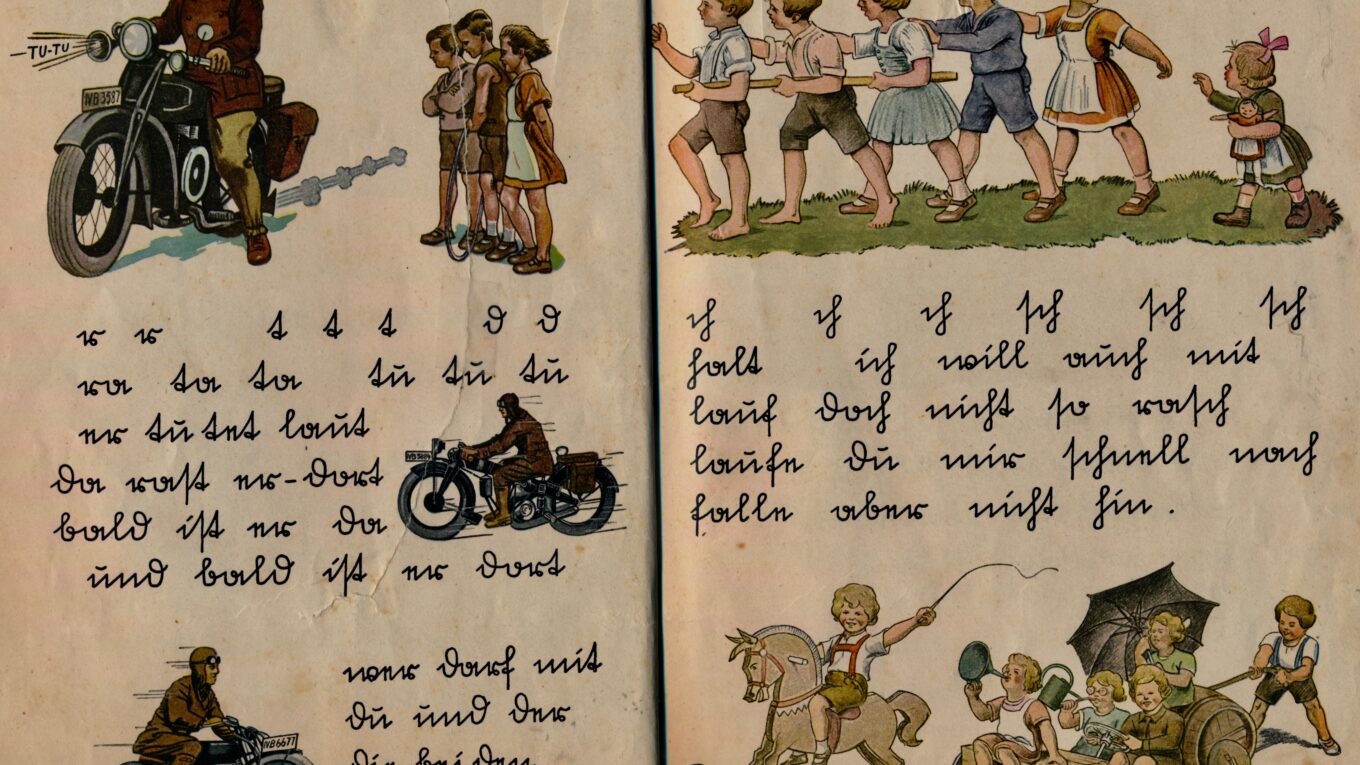 TU-TU
IVB 3587
r r t t t d d
ra ta ta tu tu tu
er tutet laut
da rast er-dort
bald ist er da
und bald ist er dort
IVB 6677
wer darf mit
du und der
die beiden
ch ch ch sch sch sch
halt ich will auch mit
lauf doch nicht so rasch
laufe du mir schnell nach
falle aber nicht hin.